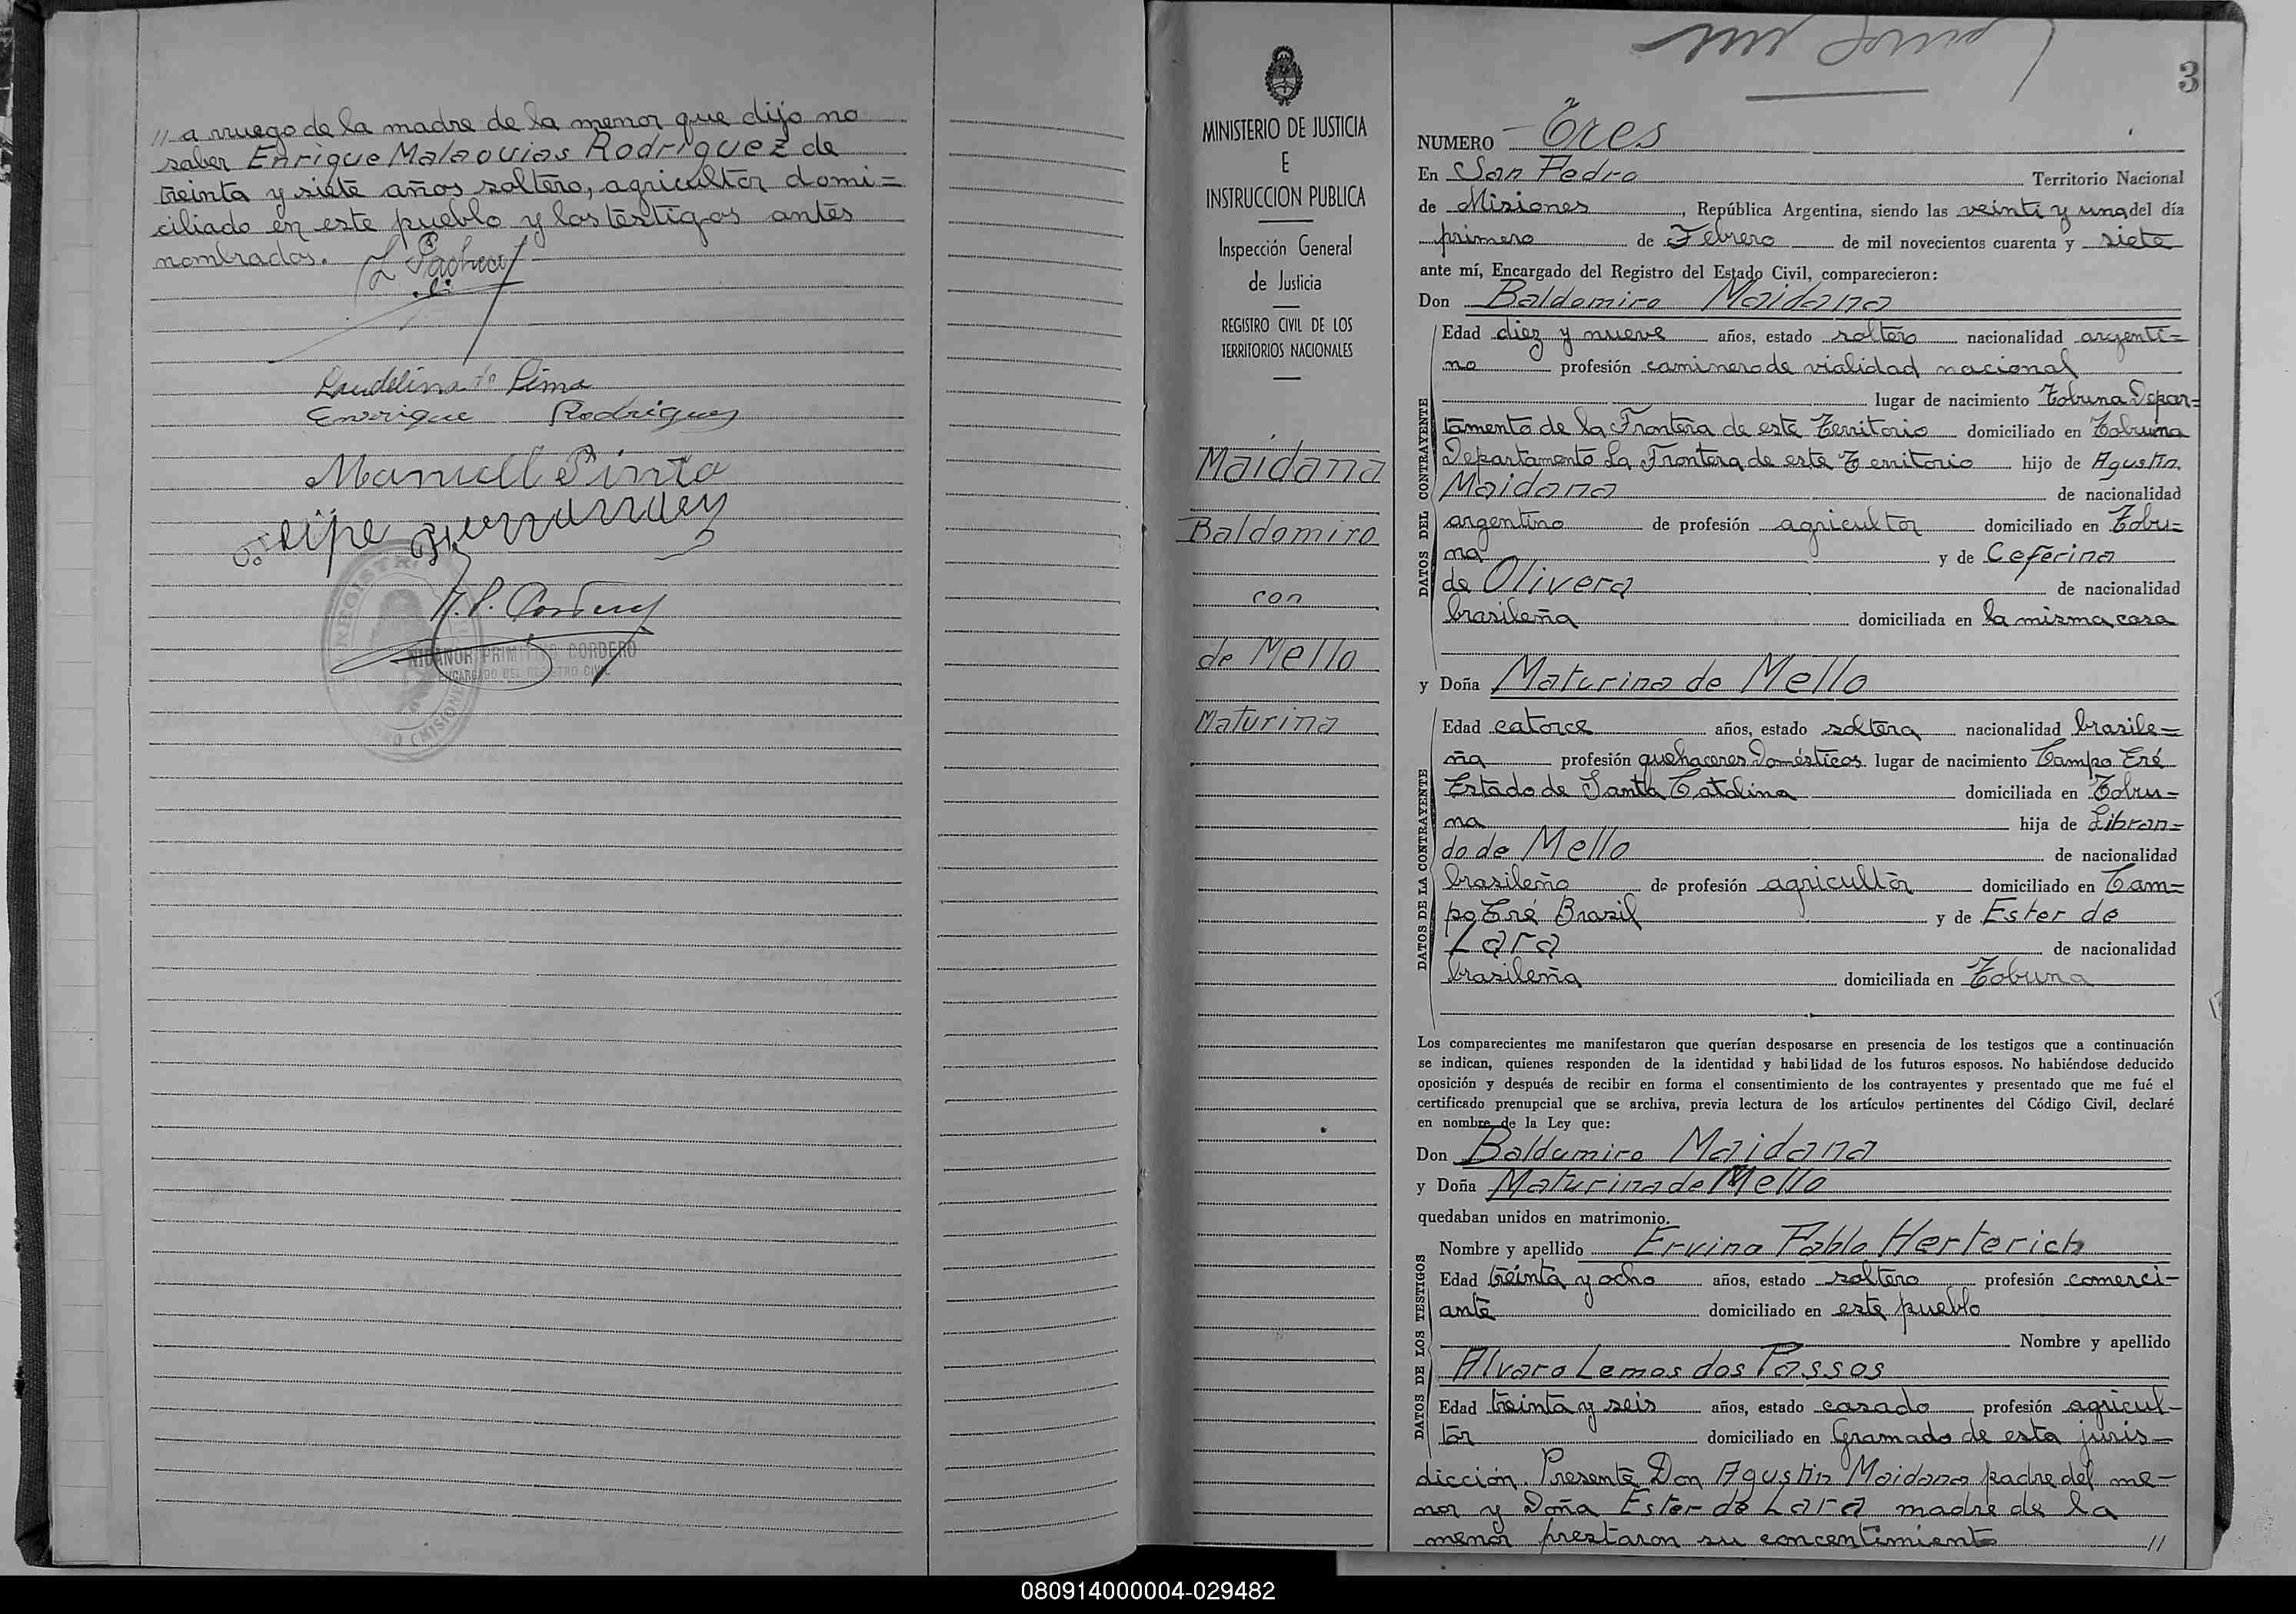 // a rruego de la madre de la menor que dijo no
saber Enrique Malaquias Rodriguez de
treinta y siete años soltero, agricultor domi=
ciliado en este pueblo y los testigos antes
nombrados. L Pacheco
Laudelina de Lima
Enrique Rodriguez
Manuell Pinto
H. P. Cordero
NICANOR PRIMITIVO CORDERO
ENCARGADO DEL REGISTRO CIVIL
MINISTERIO DE JUSTICIA
E
INSTRUCCION PUBLICA
Inspección General
de Justicia
REGISTRO CIVIL DE LOS
TERRITORIOS NACIONALES
Maidana
Baldomiro
con
de Mello
Maturina
3
NUMERO Tres
En San Pedro Territorio Nacional
de Misiones, República Argentina, siendo las veinti y una del día
primero de Febrero de mil novecientos cuarenta y siete
ante mí, Encargado del Registro del Estado Civil, comparecieron:
Don Baldomiro Maidana
DATOS DEL CONTRAYENTE
Edad diez y nueve años, estado soltero nacionalidad argenti=
no profesión caminero de vialidad nacional
lugar de nacimiento Tobuna Depar=
tamento de la Frontera de este Territorio domiciliado en Tobuna
Departamento La Frontera de este Territorio hijo de Agustin
Maidana de nacionalidad
argentino de profesión agricultor domiciliado en Tobu=
na y de Ceferina
de Olivera de nacionalidad
brasileña domiciliada en la misma casa
y Doña Maturina de Mello
DATOS DE LA CONTRAYENTE
Edad catorce años, estado soltera nacionalidad brasile=
ña profesión quehaceres Domésticos lugar de nacimiento Campo Eré
Estado de Santa Catalina domiciliada en Tobu=
na hija de Libran=
do de Mello de nacionalidad
brasileño de profesión agricultor domiciliado en Cam=
po Eré Brasil y de Ester de
Lara de nacionalidad
brasileña domiciliada en Tobuna
Los comparecientes me manifestaron que querían desposarse en presencia de los testigos que a continuación
se indican, quienes responden de la identidad y habilidad de los futuros esposos. No habiéndose deducido
oposición y después de recibir en forma el consentimiento de los contrayentes y presentado que me fué el
certificado prenupcial que se archiva, previa lectura de los artículos pertinentes del Código Civil, declaré
en nombre de la Ley que:
Don Baldumiro Maidana
y Doña Maturina de Mello
quedaban unidos en matrimonio.
DATOS DE LOS TESTIGOS
Nombre y apellido Ervino Pablo Herterich
Edad treinta y ocho años, estado soltero profesión comerci-
ante domiciliado en este pueblo
Nombre y apellido
Alvaro Lemos dos Passos
Edad treinta y seis años, estado casado profesión agricul-
tor domiciliado en Gramado de esta juris-
dicción. Presente Don Agustin Maidana padre del me-
nor y Doña Ester de Lara madre de la
menor prestaron su concentimiento //
080914000004-029482